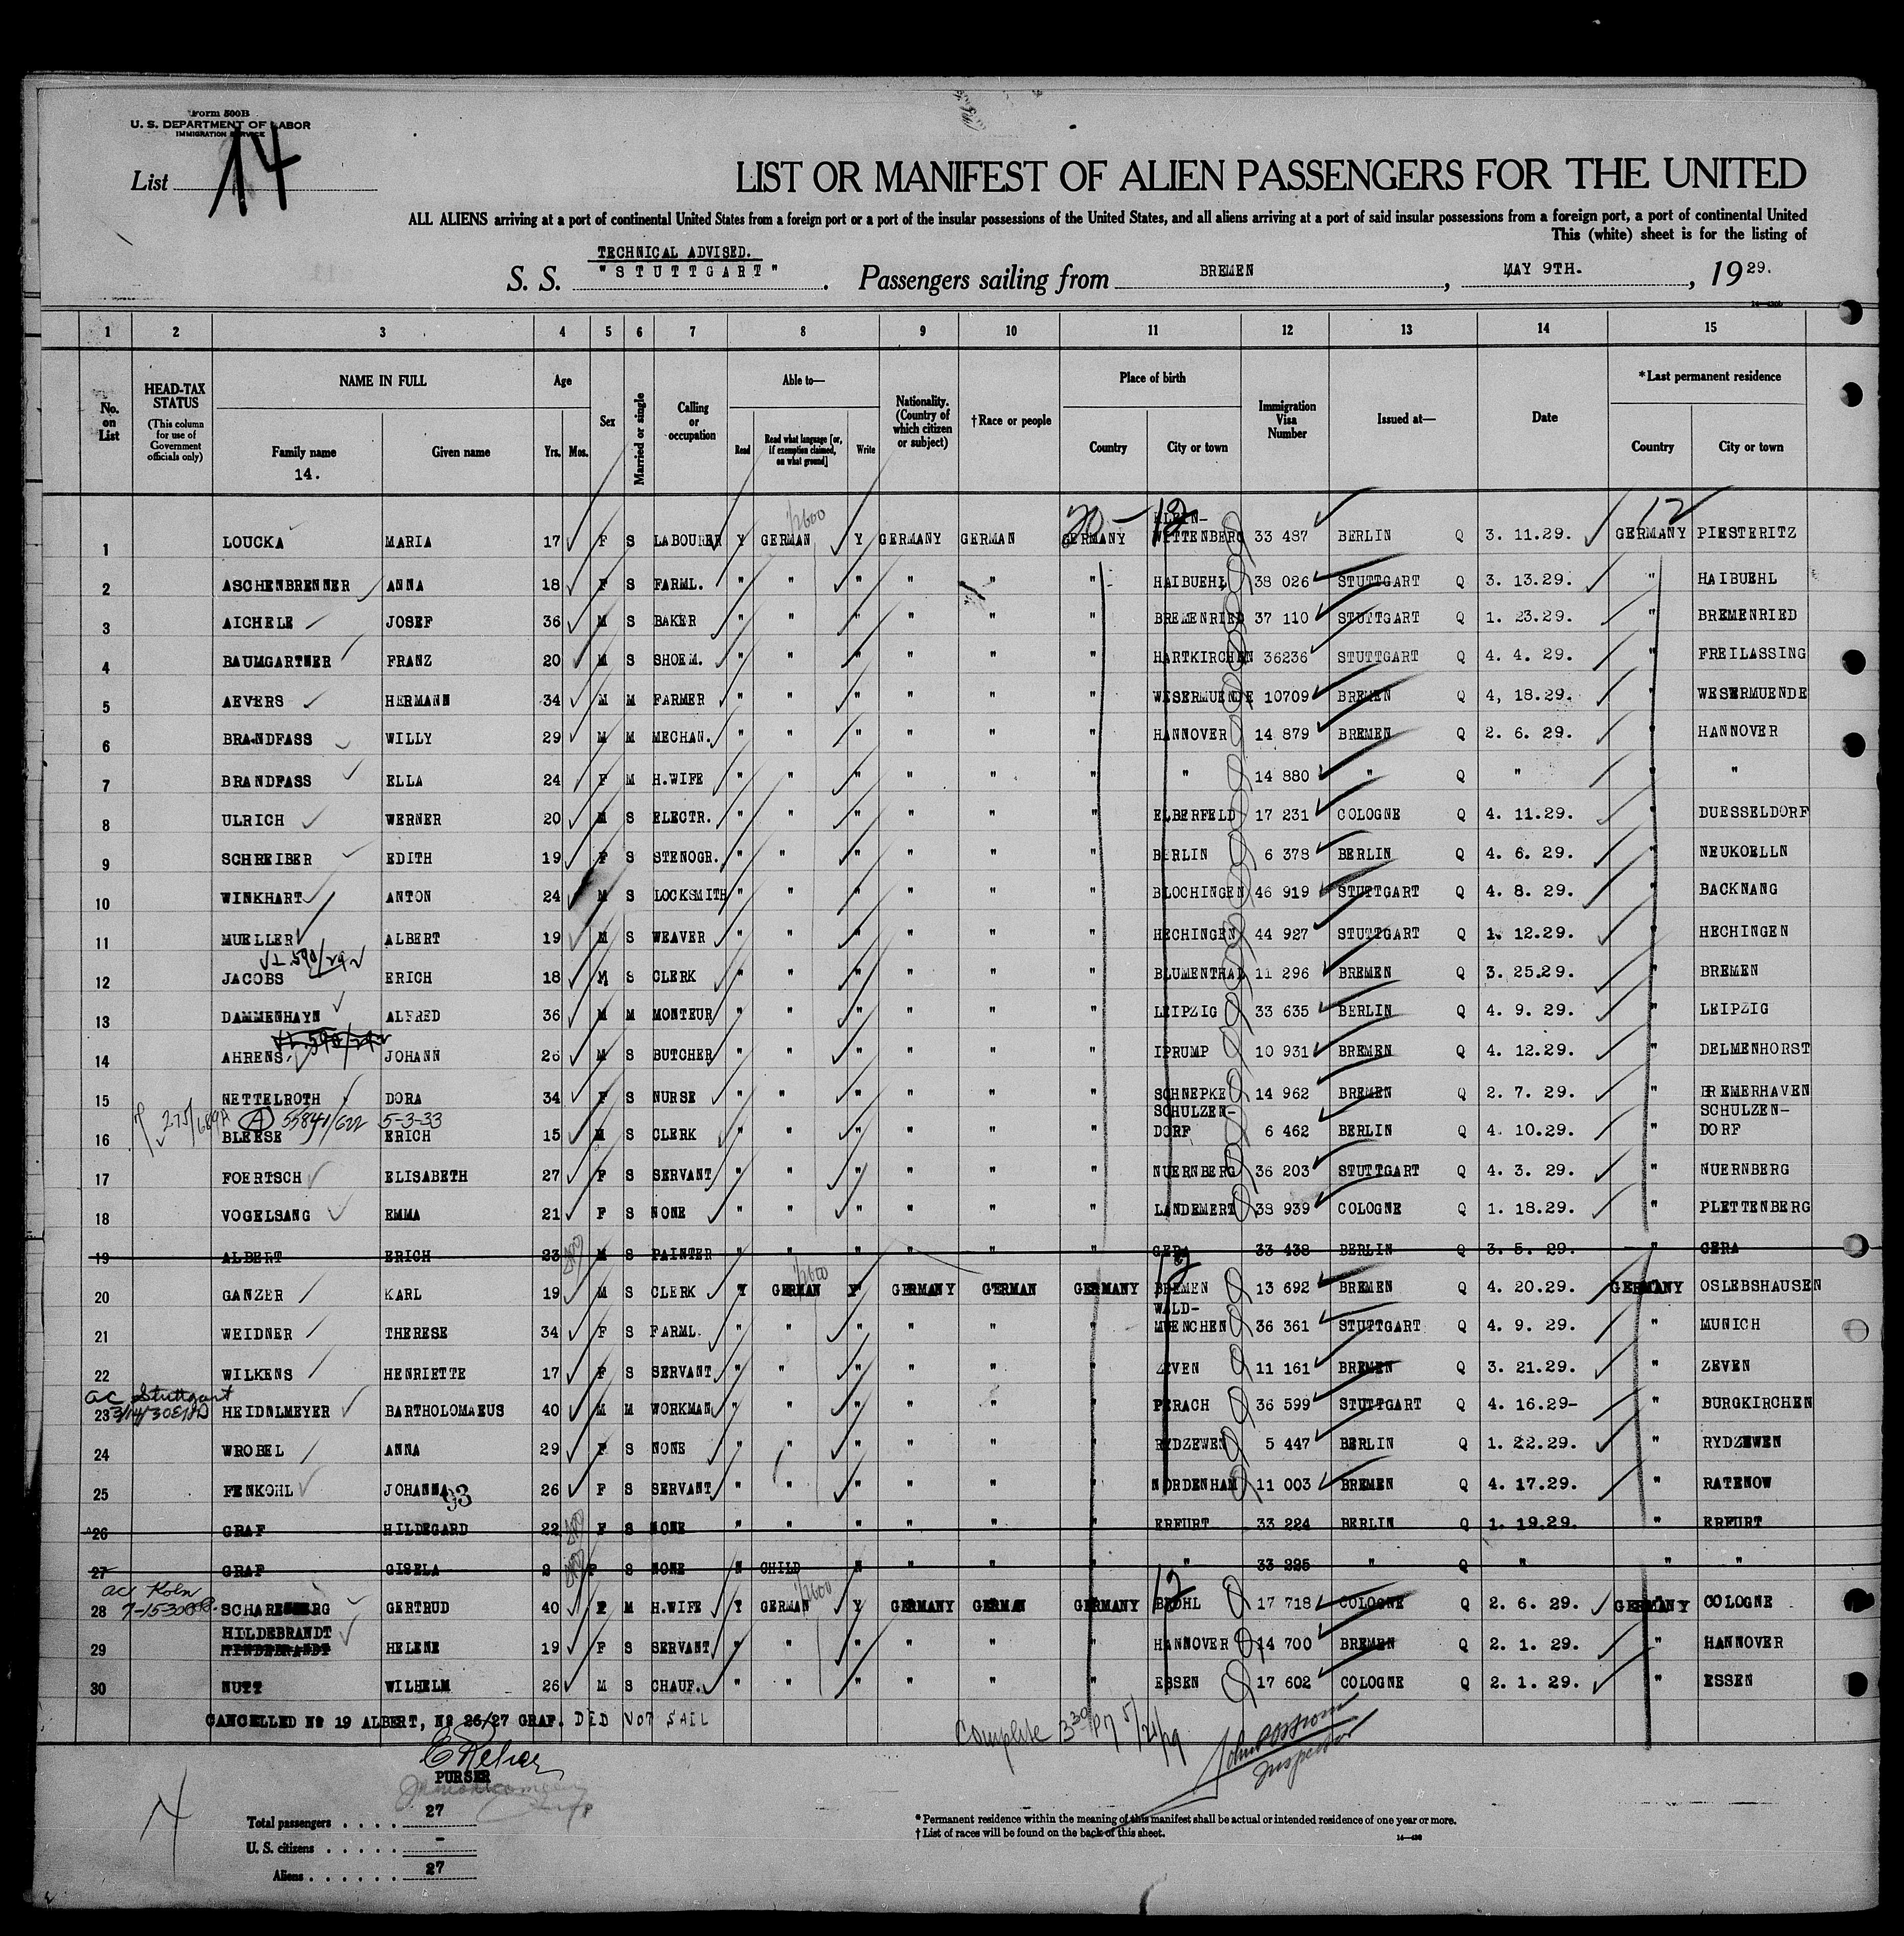 Form 500B
U. S. DEPARTMENT OF LABOR
IMMIGRATION SERVICE
List 14
LIST OR MANIFEST OF ALIEN PASSENGERS FOR THE UNITED
ALL ALIENS arriving at a port of continental United States from a foreign port or a port of the insular possessions of the United States, and all aliens arriving at a port of said insular possessions from a foreign port, a port of continental United
This (white) sheet is for the listing of
TECHNICAL ADVISED.
S. S. "STUTTGART". Passengers sailing from BREMEN, MAY 9TH., 1929.
1 2 3 4 5 6 7 8 9 10 11 12 13 14 15
No. on List
HEAD-TAX STATUS (This column for use of Government officials only)
NAME IN FULL Family name 14. Given name
Age Yrs. Mos.
Sex
Married or single
Calling or occupation
Able to— Read Read what language [or, if exemption claimed, on what ground] Write
Nationality. (Country of which citizen or subject)
†Race or people
Place of birth Country City or town
Immigration Visa Number
Issued at—
Date
*Last permanent residence Country City or town
20 — 12 12
1 LOUCKA MARIA 17 F S LABOURER Y GERMAN Y GERMANY GERMAN GERMANY KLEIN-WITTENBERG 33 487 BERLIN Q 3. 11.29. GERMANY PIESTERITZ
2 ASCHENBRENNER ANNA 18 F S FARML. " " " " " " HAIBUEHL 38 026 STUTTGART Q 3. 13.29. " HAIBUEHL
3 AICHELE JOSEF 36 M S BAKER " " " " " " BREMENRIED 37 110 STUTTGART Q 1. 23.29. " BREMENRIED
4 BAUMGARTNER FRANZ 20 M S SHOEM. " " " " " " HARTKIRCHEN 36236 STUTTGART Q 4. 4. 29. " FREILASSING
5 AEVERS HERMANN 34 M M FARMER " " " " " " WESERMUENDE 10709 BREMEN Q 4, 18.29. " WESERMUENDE
6 BRANDFASS WILLY 29 M M MECHAN. " " " " " " HANNOVER 14 879 BREMEN Q 2. 6. 29. " HANNOVER
7 BRANDFASS ELLA 24 F M H.WIFE " " " " " " " 14 880 " Q " " "
8 ULRICH WERNER 20 M S ELECTR. " " " " " " ELBERFELD 17 231 COLOGNE Q 4. 11.29. " DUESSELDORF
9 SCHREIBER EDITH 19 F S STENOGR. " " " " " " BERLIN 6 378 BERLIN Q 4. 6. 29. " NEUKOELLN
10 WINKHART ANTON 24 M S LOCKSMITH " " " " " " BLOCHINGEN 46 919 STUTTGART Q 4. 8. 29. " BACKNANG
11 MUELLER ALBERT 19 M S WEAVER " " " " " " HECHINGEN 44 927 STUTTGART Q 1. 12.29. " HECHINGEN
12 JACOBS ERICH 18 M S CLERK " " " " " " BLUMENTHAL 11 296 BREMEN Q 3. 25.29. " BREMEN
13 DAMMENHAYN ALFRED 36 M M MONTEUR " " " " " " LEIPZIG 33 635 BERLIN Q 4. 9. 29. " LEIPZIG
14 AHRENS JOHANN 26 M S BUTCHER " " " " " " IPRUMP 10 931 BREMEN Q 4. 12.29. " DELMENHORST
15 NETTELROTH DORA 34 F S NURSE " " " " " " SCHNEPKE 14 962 BREMEN Q 2. 7. 29. " BREMERHAVEN
A 55841/622 5-3-33
16 BLEESE ERICH 15 M S CLERK " " " " " " SCHULZEN-DORF 6 462 BERLIN Q 4. 10.29. " SCHULZEN-DORF
17 FOERTSCH ELISABETH 27 F S SERVANT " " " " " " NUERNBERG 36 203 STUTTGART Q 4. 3. 29. " NUERNBERG
18 VOGELSANG EMMA 21 F S NONE " " " " " " LANDEMERT 38 939 COLOGNE Q 1. 18.29. " PLETTENBERG
19 ALBERT ERICH 23 M S PAINTER " " " " " " GERA 33 438 BERLIN Q 3. 5. 29. " GERA
20 GANZER KARL 19 M S CLERK Y GERMAN Y GERMANY GERMAN GERMANY BREMEN 13 692 BREMEN Q 4. 20.29. GERMANY OSLEBSHAUSEN
21 WEIDNER THERESE 34 F S FARML. " " " " " " WALD-MUENCHEN 36 361 STUTTGART Q 4. 9. 29. " MUNICH
22 WILKENS HENRIETTE 17 F S SERVANT " " " " " " ZEVEN 11 161 BREMEN Q 3. 21.29. " ZEVEN
ac Stuttgart
23 HEIDNLMEYER BARTHOLOMAEUS 40 M M WORKMAN " " " " " " PERACH 36 599 STUTTGART Q 4. 16.29- " BURGKIRCHEN
24 WROBEL ANNA 29 F S NONE " " " " " " RYDZEWEN 5 447 BERLIN Q 1. 22.29. " RYDZEWEN
25 FENKOHL JOHANNA 93 26 F S SERVANT " " " " " " NORDENHAM 11 003 BREMEN Q 4. 17.29. " RATENOW
26 GRAF HILDEGARD 22 F S NONE " " " " " " ERFURT 33 224 BERLIN Q 1. 19.29. " ERFURT
27 GRAF GISELA 2 F S NONE N CHILD N " " " " 33 225 " Q " " "
ac Koln
28 GERTRUD 40 F M H.WIFE Y GERMAN Y GERMANY GERMAN GERMANY BROHL 17 718 COLOGNE Q 2. 6. 29. GERMANY COLOGNE
29 HILDEBRANDT HELENE 19 F S SERVANT " " " " " " HANNOVER 14 700 BREMEN Q 2. 1. 29. " HANNOVER
30 NUTT WILHELM 26 M S CHAUF. " " " " " " ESSEN 17 602 COLOGNE Q 2. 1. 29. " ESSEN
CANCELLED No 19 ALBERT, No 26/27 GRAF. DID NOT SAIL
Complete 3 30 PM 5/21/29
Inspector
PURSER
Total passengers . . . . 27
U. S. citizens . . . . . -
Aliens . . . . . . 27
* Permanent residence within the meaning of this manifest shall be actual or intended residence of one year or more.
† List of races will be found on the back of this sheet.